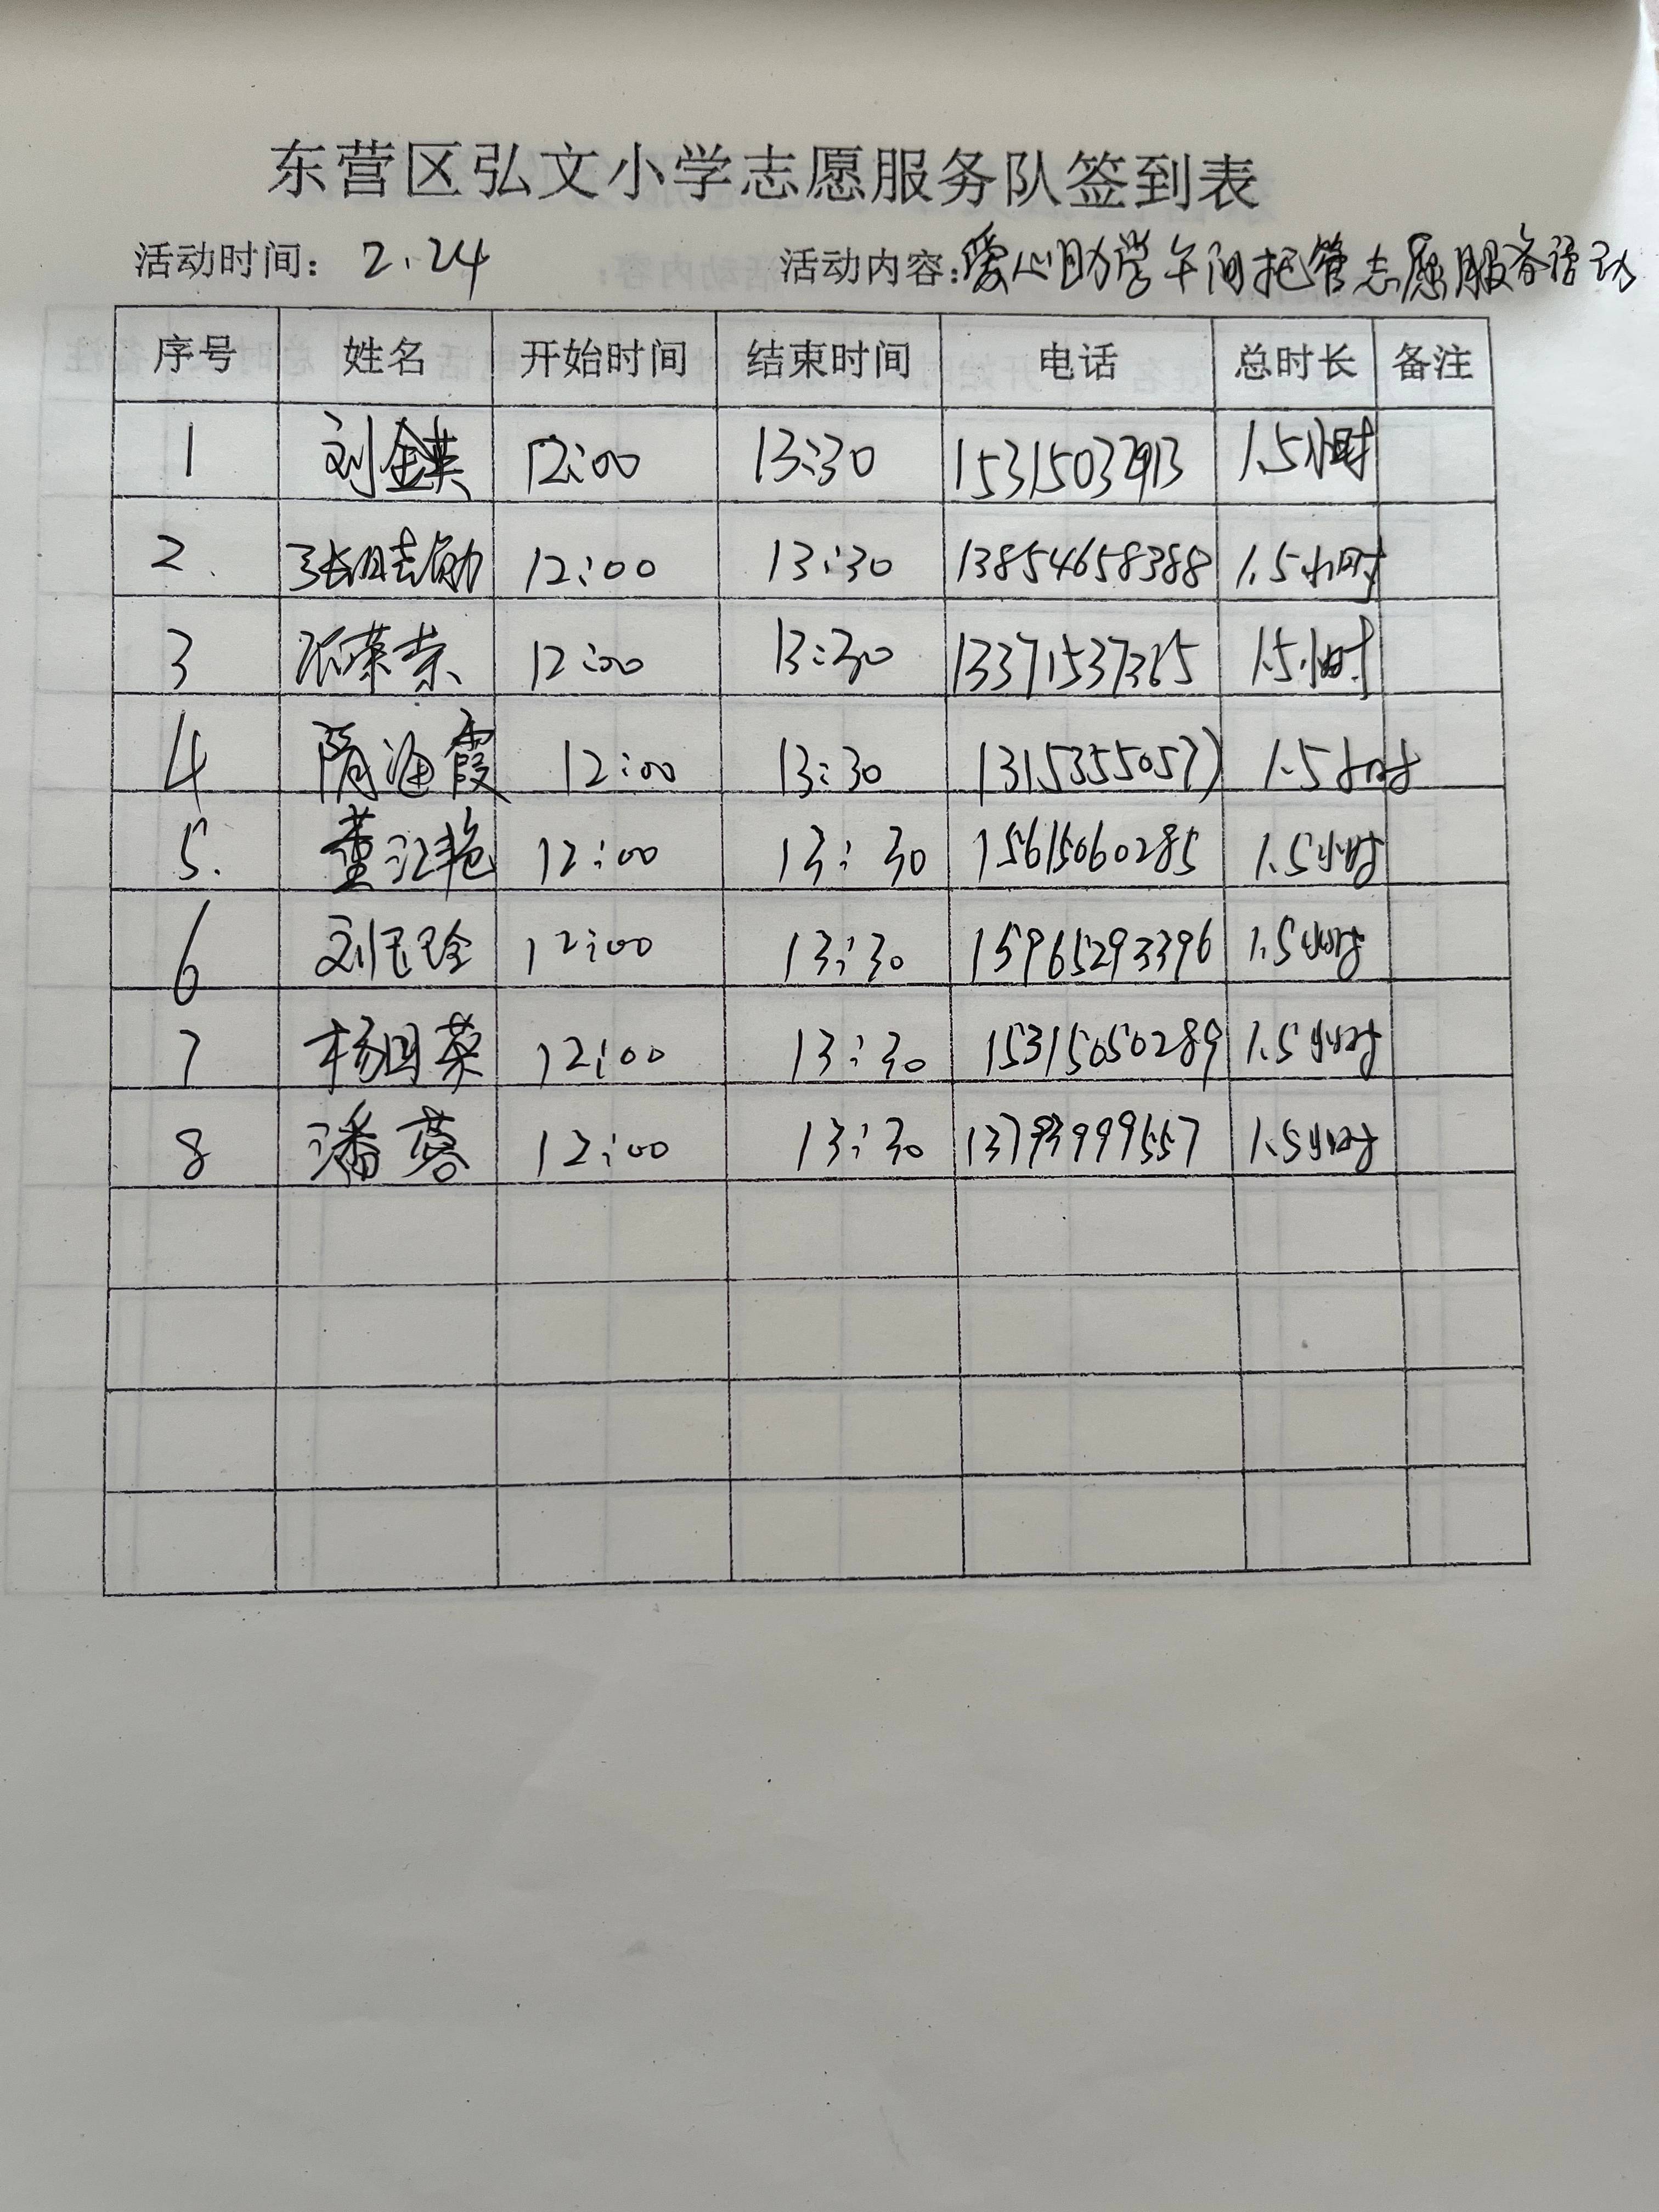 东营区弘文小学志愿服务队签到表
活动时间：2.24 活动内容：爱心助学午间托管志愿服务活动
序号 姓名 开始时间 结束时间 电话 总时长 备注
1 刘金英 12:00 13:30 1.5小时
2. 12:00 13:30 13854658388 1.5小时
3 12:00 13:30 13371537365 1.5小时
4 隋海霞 12:00 13:30 13153550577 1.5小时
5. 董江艳 12:00 13:30 15615060285 1.5小时
6 12:00 13:30 15965293396 1.5小时
7 杨国英 12:00 13:30 15315050289 1.5小时
8 潘蓉 12:00 13:30 13793999557 1.5小时